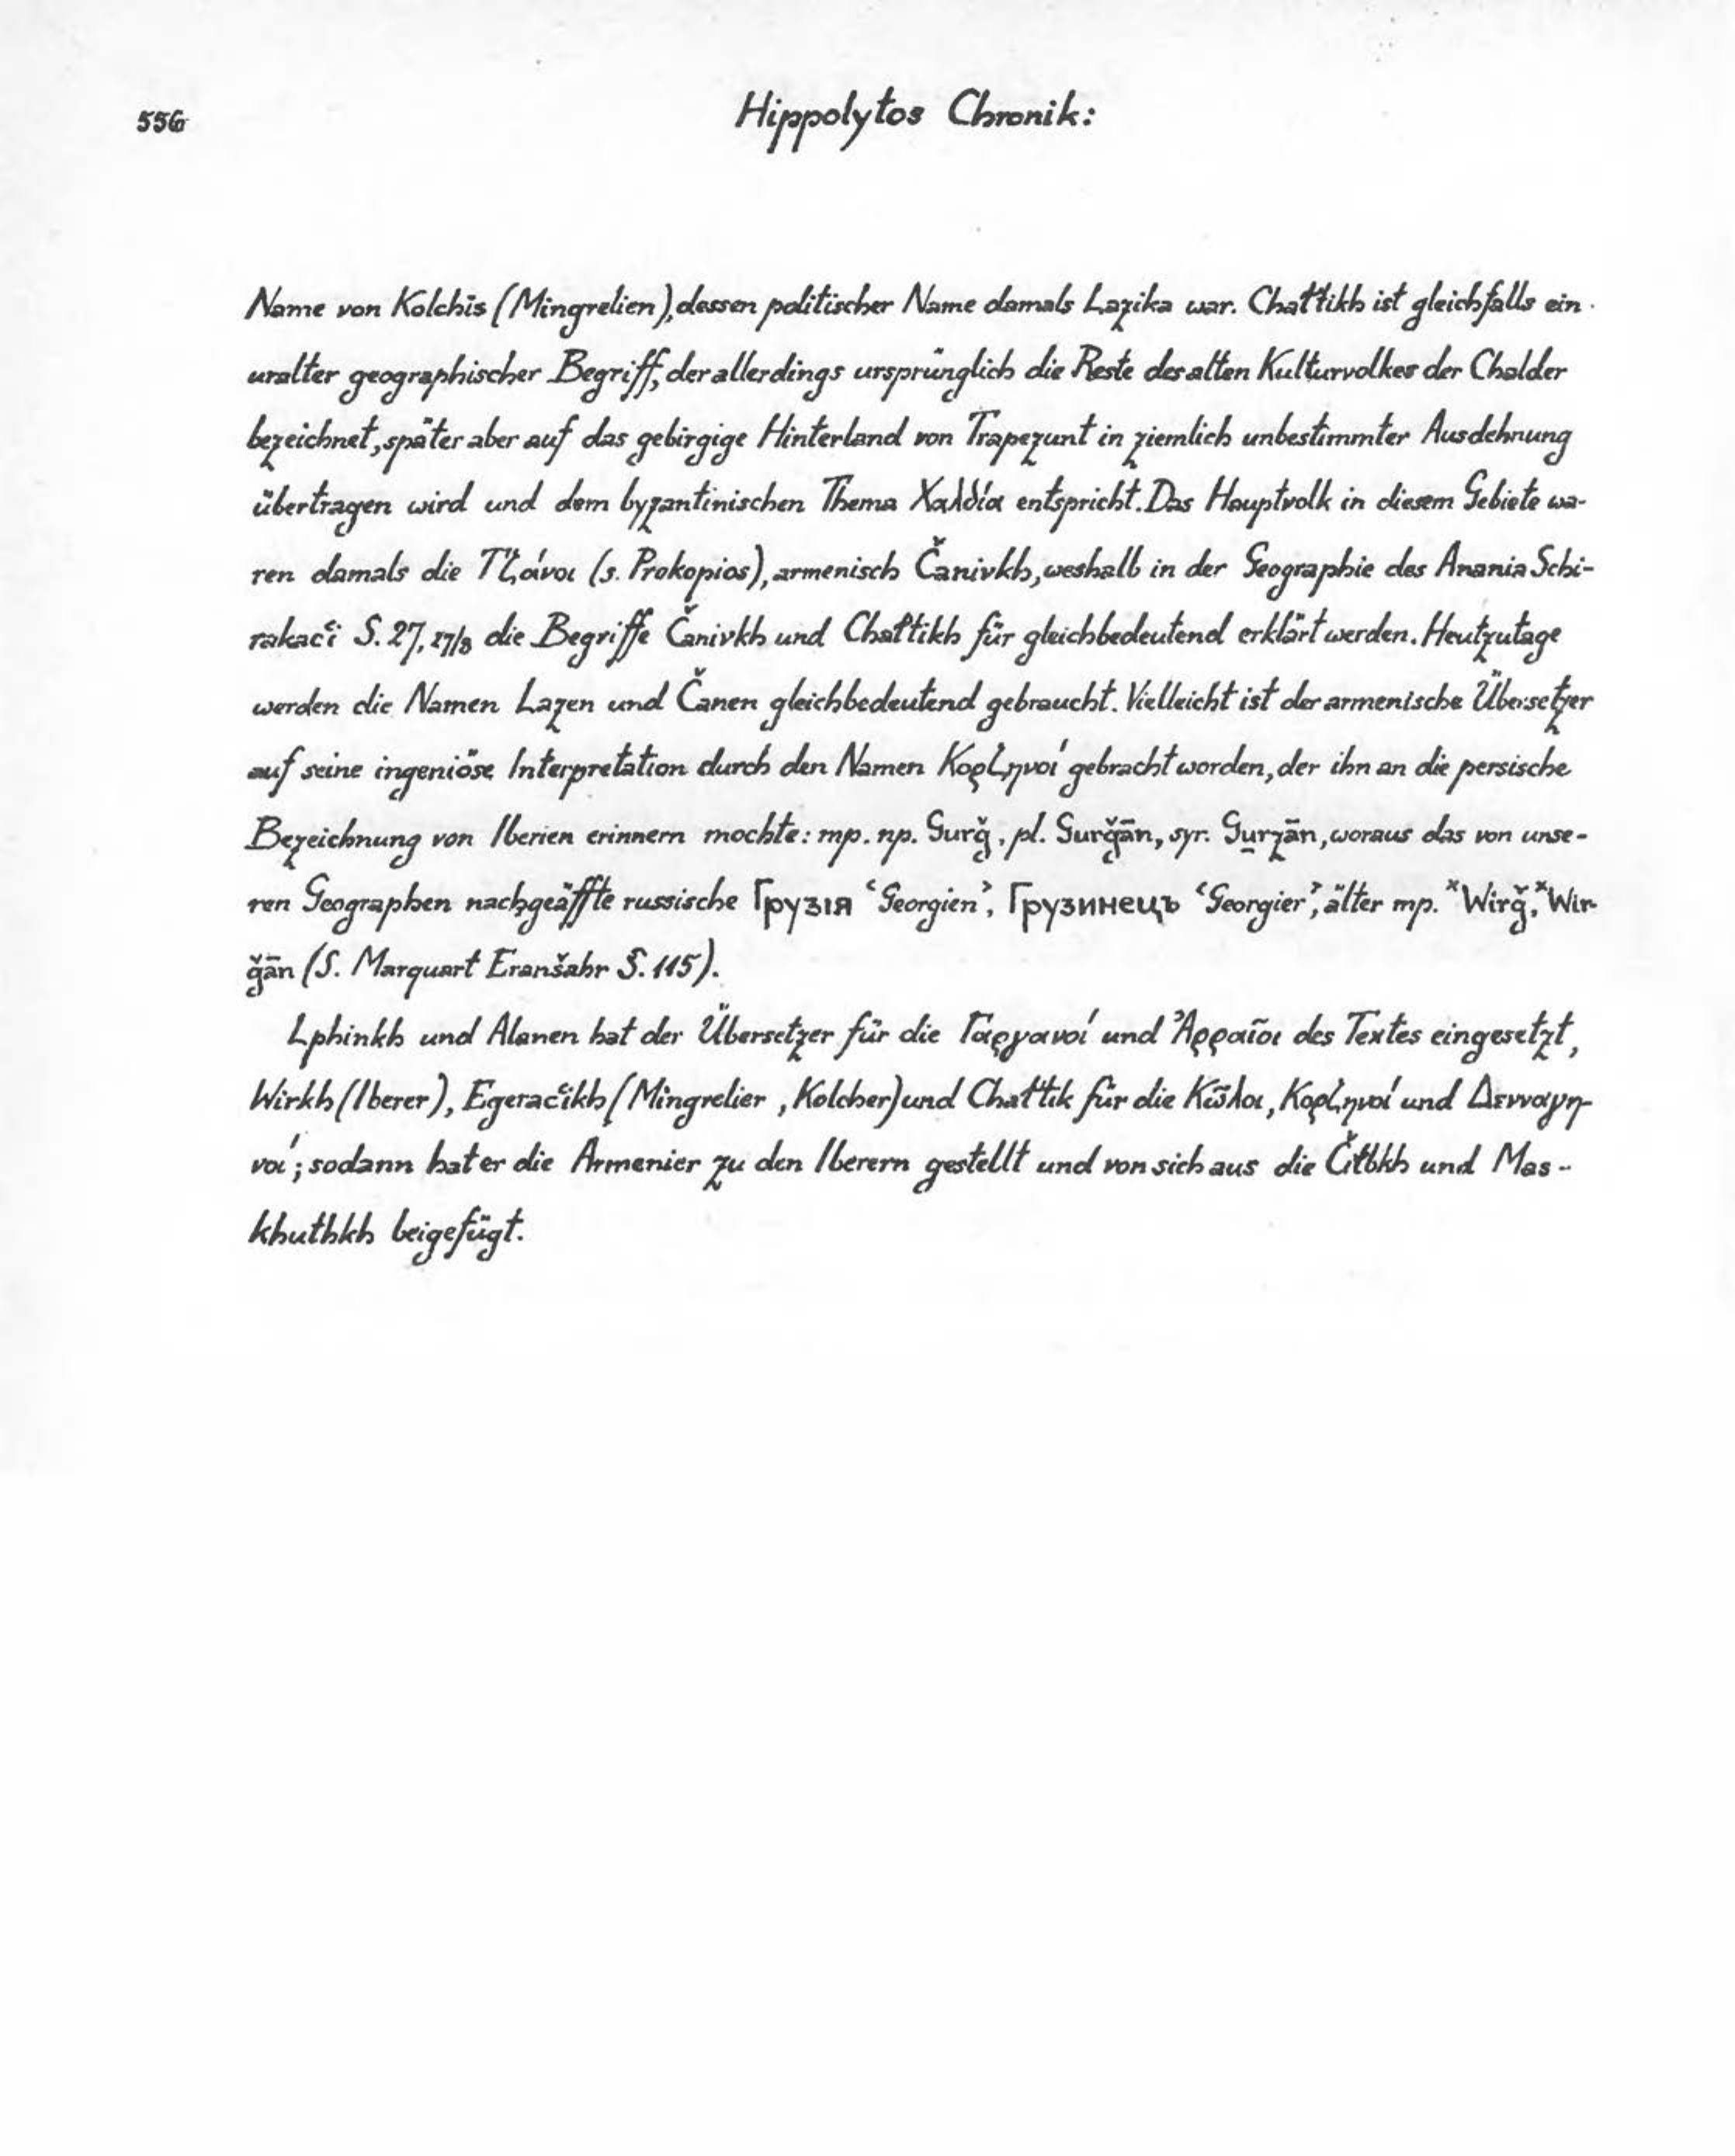 556
Hippolytos Chronik:
Name von Kolchis (Mingrelien), dessen politischer Name damals Lazika war. Chałtikh ist gleichfalls ein
uralter geographischer Begriff, der allerdings ursprünglich die Reste des alten Kulturvolkes der Chalder
bezeichnet, später aber auf das gebirgige Hinterland von Trapezunt in ziemlich unbestimmter Ausdehnung
übertragen wird und dem byzantinischen Thema Χαλδία entspricht. Das Hauptvolk in diesem Gebiete wa-
ren damals die Τζάνοι (s. Prokopios), armenisch Čanivkh, weshalb in der Geographie des Anania Schi-
rakac‘i S. 27, 17/8 die Begriffe Čanivkh und Chałtikh für gleichbedeutend erklärt werden. Heutzutage
werden die Namen Lazen und Čanen gleichbedeutend gebraucht. Vielleicht ist der armenische Übersetzer
auf seine ingeniöse Interpretation durch den Namen Κορζηνοί gebracht worden, der ihn an die persische
Bezeichnung von Iberien erinnern mochte: mp. np. Gurǧ, pl. Gurǧān, syr. Gurzān, woraus das von unse-
ren Geographen nachgeäffte russische Грузія ‘Georgien’, Грузинецъ ‘Georgier’, älter mp. *Wirǧ, *Wir-
ǧān (S. Marquart Eranšahr S. 115).
Lphinkh und Alanen hat der Übersetzer für die Γαργανοί und Ἀρραῖοι des Textes eingesetzt,
Wirkh (Iberer), Egerac‘ikh (Mingrelier, Kolcher) und Chałtik für die Κῶλοι, Κορζηνοί und Δενναγη-
νοί; sodann hat er die Armenier zu den Iberern gestellt und von sich aus die Čiłbkh und Mas-
khuthkh beigefügt.